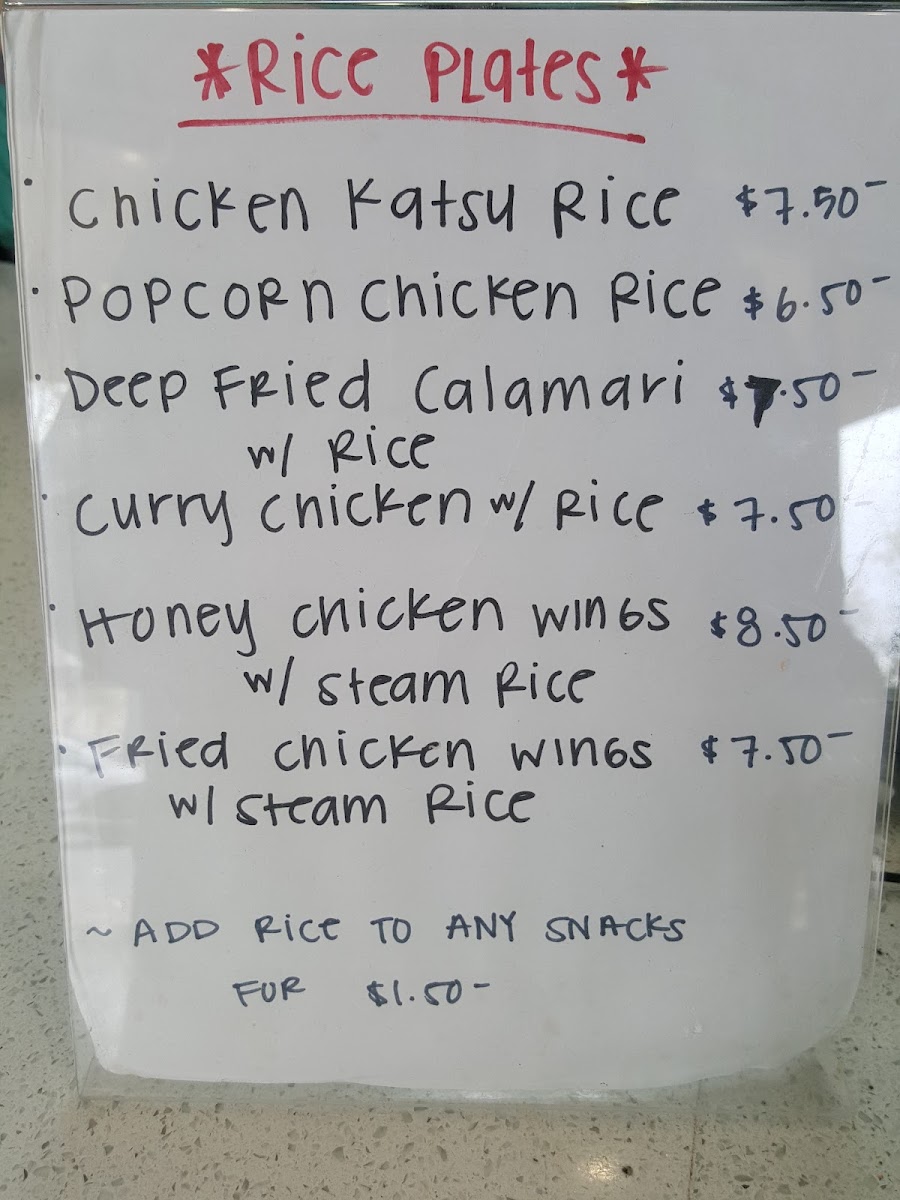 *Rice Plates*
· Chicken Katsu Rice $7.50-
· Popcorn Chicken Rice $6.50-
· Deep Fried Calamari $7.50-
w/ Rice
· Curry Chicken w/ Rice $7.50-
· Honey Chicken Wings $8.50-
w/ Steam Rice
· Fried Chicken Wings $7.50-
w/ Steam Rice
~ ADD Rice TO ANY SNACKS
FOR $1.50-